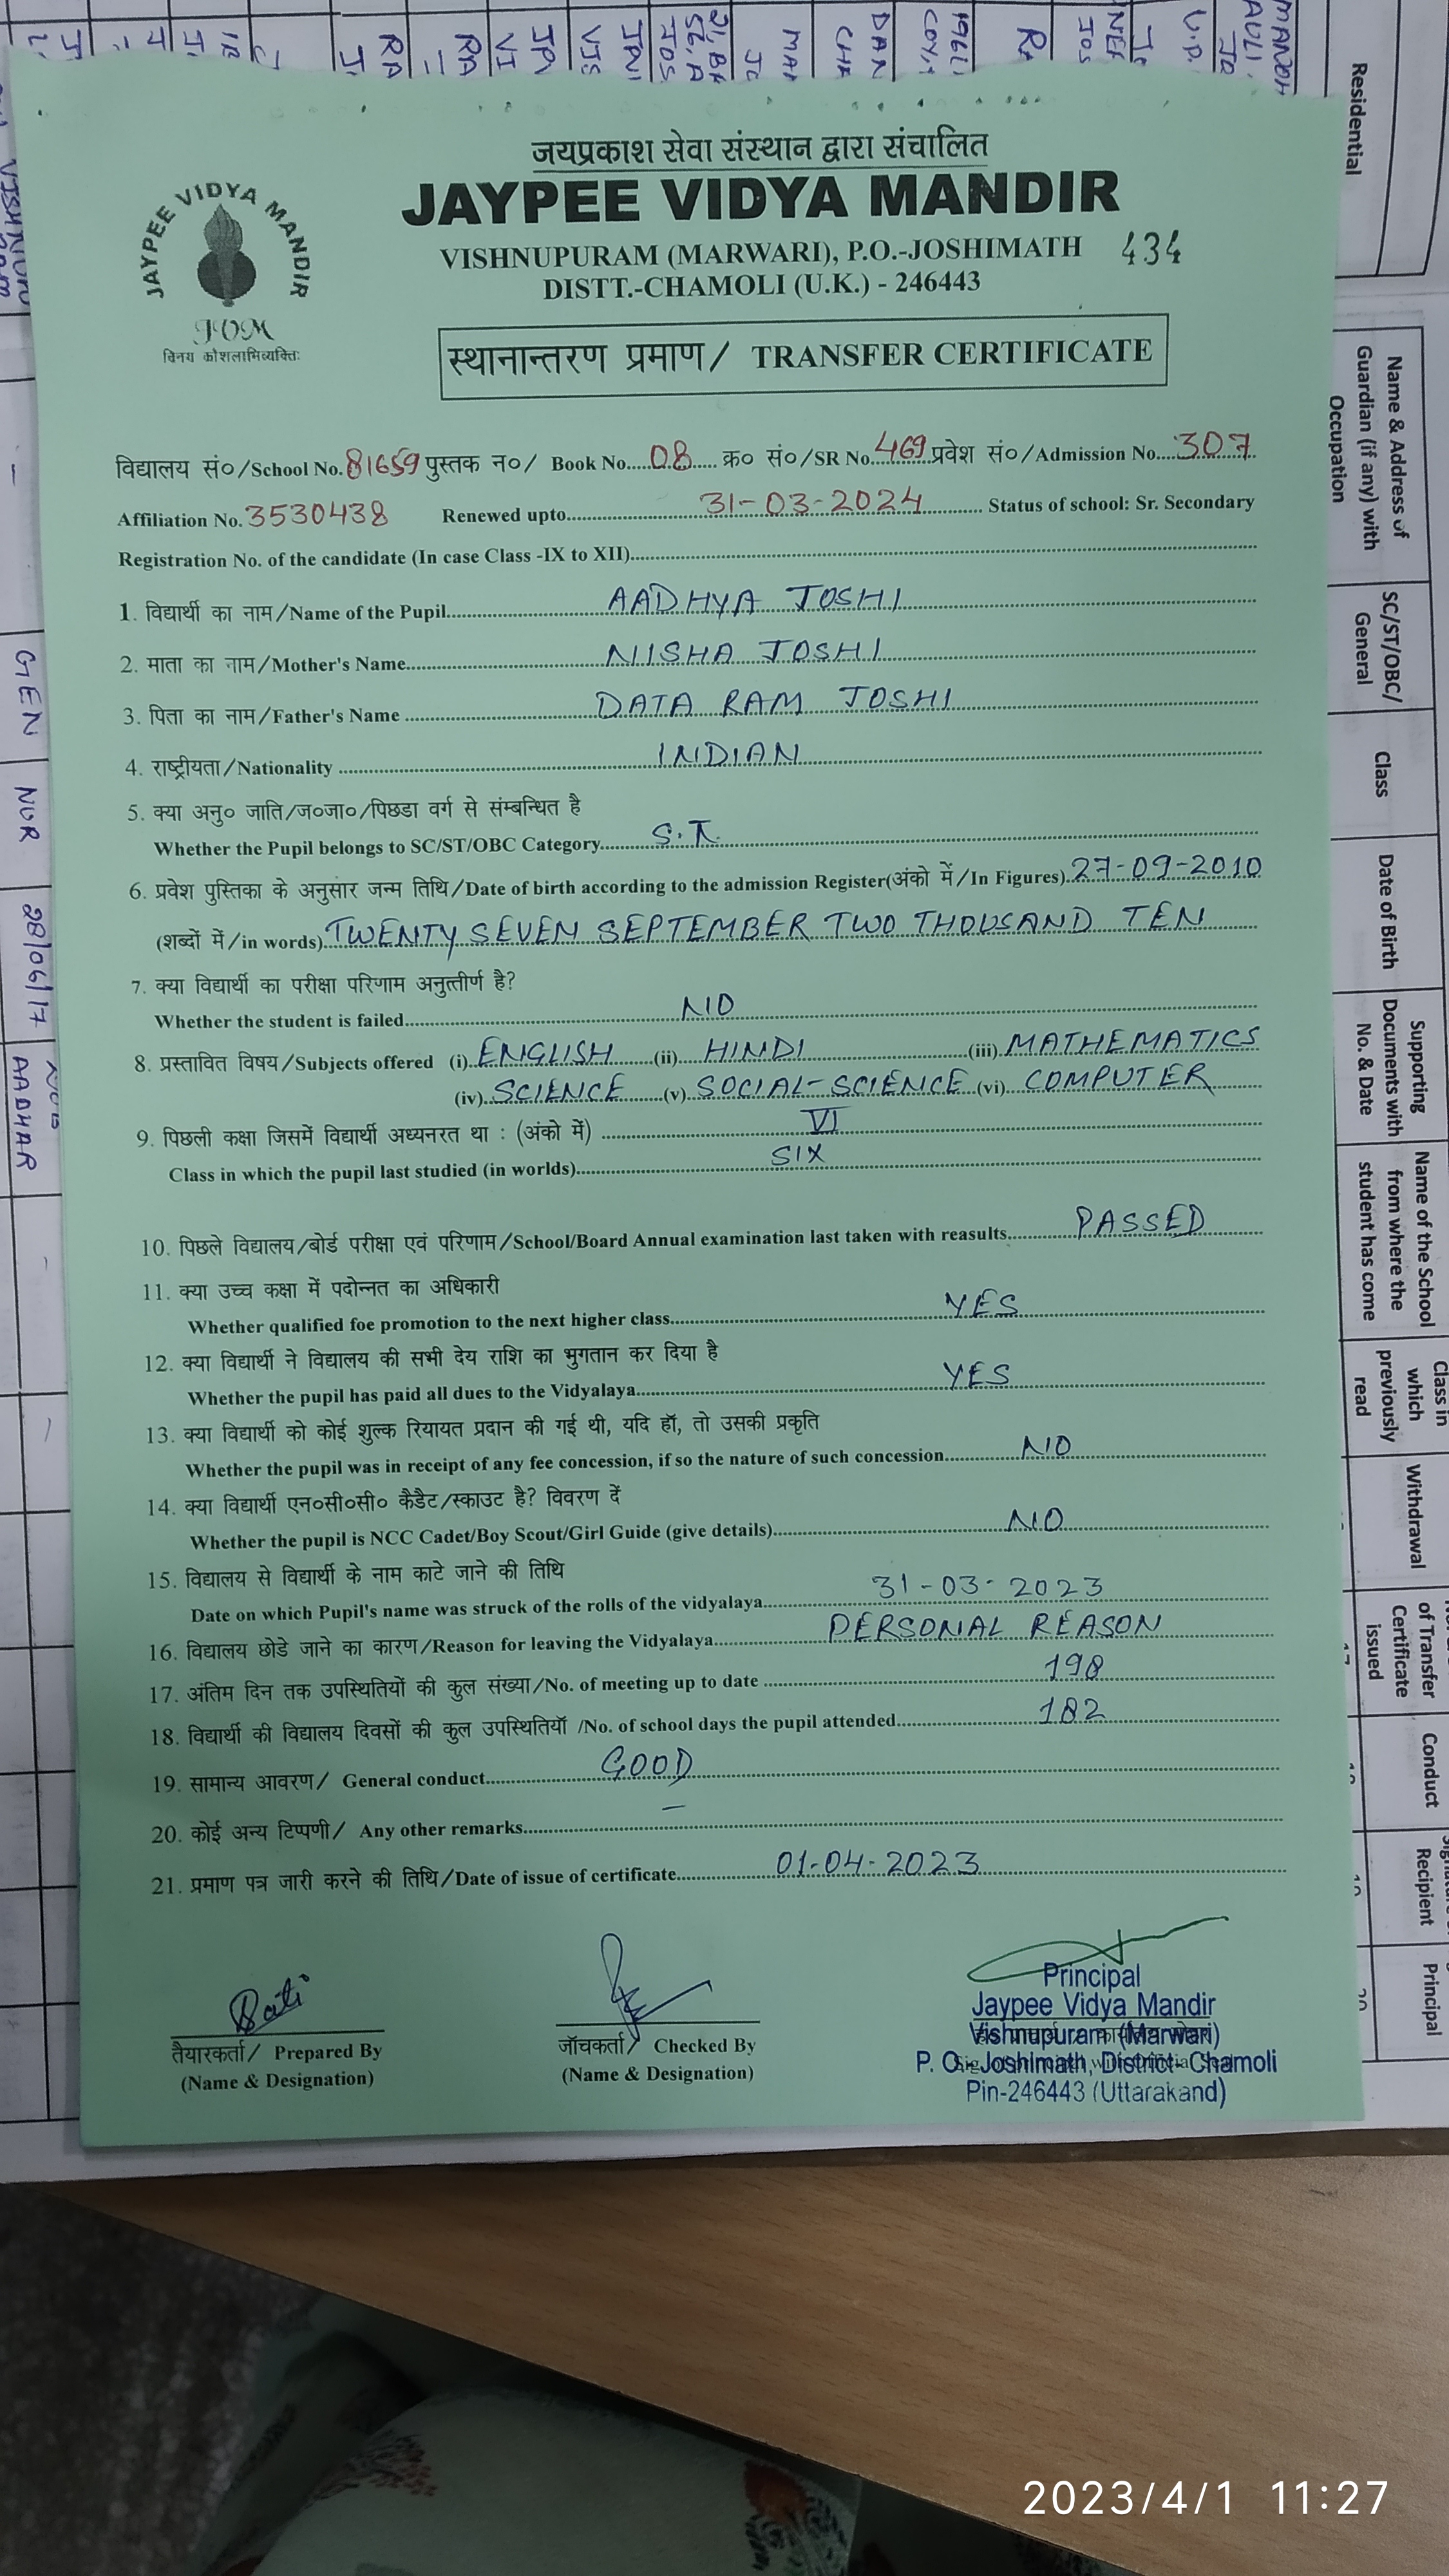 जयप्रकाश सेवा संस्थान द्वारा संचालित
JAYPEE VIDYA MANDIR
JAYPEE VIDYA MANDIR
VISHNUPURAM (MARWARI), P.O.-JOSHIMATH 434
DISTT.-CHAMOLI (U.K.) - 246443
JOM
विनय कौशलाभिव्यक्तिः
स्थानान्तरण प्रमाण/ TRANSFER CERTIFICATE
विद्यालय सं०/School No. 81659 पुस्तक न०/ Book No.... 08 .... क्र० सं०/SR No. 469 प्रवेश सं०/Admission No.... 307
Affiliation No. 3530438 Renewed upto.... 31-03-2024 .... Status of school: Sr. Secondary
Registration No. of the candidate (In case Class -IX to XII)....
1. विद्यार्थी का नाम/Name of the Pupil.... AADHYA JOSHI
2. माता का नाम/Mother's Name.... NISHA JOSHI
3. पिता का नाम/Father's Name .... DATA RAM JOSHI
4. राष्ट्रीयता/Nationality .... INDIAN
5. क्या अनु० जाति/ज०जा०/पिछडा वर्ग से संम्बन्धित है
Whether the Pupil belongs to SC/ST/OBC Category.... S.T.
6. प्रवेश पुस्तिका के अनुसार जन्म तिथि/Date of birth according to the admission Register(अंको में/In Figures). 27-09-2010
(शब्दों में/in words) TWENTY SEVEN SEPTEMBER TWO THOUSAND TEN
7. क्या विद्यार्थी का परीक्षा परिणाम अनुत्तीर्ण है?
Whether the student is failed.... NO
8. प्रस्तावित विषय/Subjects offered (i) ENGLISH ....(ii) HINDI ....(iii) MATHEMATICS
(iv) SCIENCE ....(v) SOCIAL-SCIENCE (vi) COMPUTER
9. पिछली कक्षा जिसमें विद्यार्थी अध्यनरत था : (अंको में) .... VI
Class in which the pupil last studied (in worlds).... SIX
10. पिछले विद्यालय/बोर्ड परीक्षा एवं परिणाम/School/Board Annual examination last taken with reasults.... PASSED
11. क्या उच्च कक्षा में पदोन्नत का अधिकारी
Whether qualified foe promotion to the next higher class.... YES
12. क्या विद्यार्थी ने विद्यालय की सभी देय राशि का भुगतान कर दिया है
Whether the pupil has paid all dues to the Vidyalaya.... YES
13. क्या विद्यार्थी को कोई शुल्क रियायत प्रदान की गई थी, यदि हॉ, तो उसकी प्रकृति
Whether the pupil was in receipt of any fee concession, if so the nature of such concession.... NO
14. क्या विद्यार्थी एन०सी०सी० कैडैट/स्काउट है? विवरण दें
Whether the pupil is NCC Cadet/Boy Scout/Girl Guide (give details).... NO
15. विद्यालय से विद्यार्थी के नाम काटे जाने की तिथि
Date on which Pupil's name was struck of the rolls of the vidyalaya.... 31-03-2023
16. विद्यालय छोडे जाने का कारण/Reason for leaving the Vidyalaya.... PERSONAL REASON
17. अंतिम दिन तक उपस्थितियों की कुल संख्या/No. of meeting up to date .... 198
18. विद्यार्थी की विद्यालय दिवसों की कुल उपस्थितियॉ /No. of school days the pupil attended.... 182
19. सामान्य आवरण/ General conduct.... GOOD
20. कोई अन्य टिप्पणी/ Any other remarks.... –
21. प्रमाण पत्र जारी करने की तिथि/Date of issue of certificate.... 01-04-2023
तैयारकर्ता/ Prepared By
(Name & Designation)
जॉचकर्ता/ Checked By
(Name & Designation)
Principal
Jaypee Vidya Mandir
Vishnupuram (Marwari)
P. O.- Joshimath, District- Chamoli
Pin-246443 (Uttarakand)
Residential
Name & Address of
Guardian (if any) with
Occupation
SC/ST/OBC/
General
Class
Date of Birth
Supporting
Documents with
No. & Date
Name of the School
from where the
student has come
Class in
which
previously
read
Withdrawal
of Transfer
Certificate
issued
Conduct
Recipient
Principal
GEN
NUR
28/06/17
AADHAR
2023/4/1 11:27